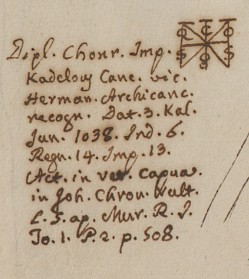 Dipl. Chonr. Imp.
Kadelous Canc. vic.
Herman. Archicanc.
recogn. Dat. 3. Kal.
Jun. 1038. Ind. 6.
Regn. 14. Imp. 13.
Act. in vet. Capua.
in Joh. Chron. Vult.
L. 5. ap. Mur. R. I.
To. 1. P. 2. p. 508.